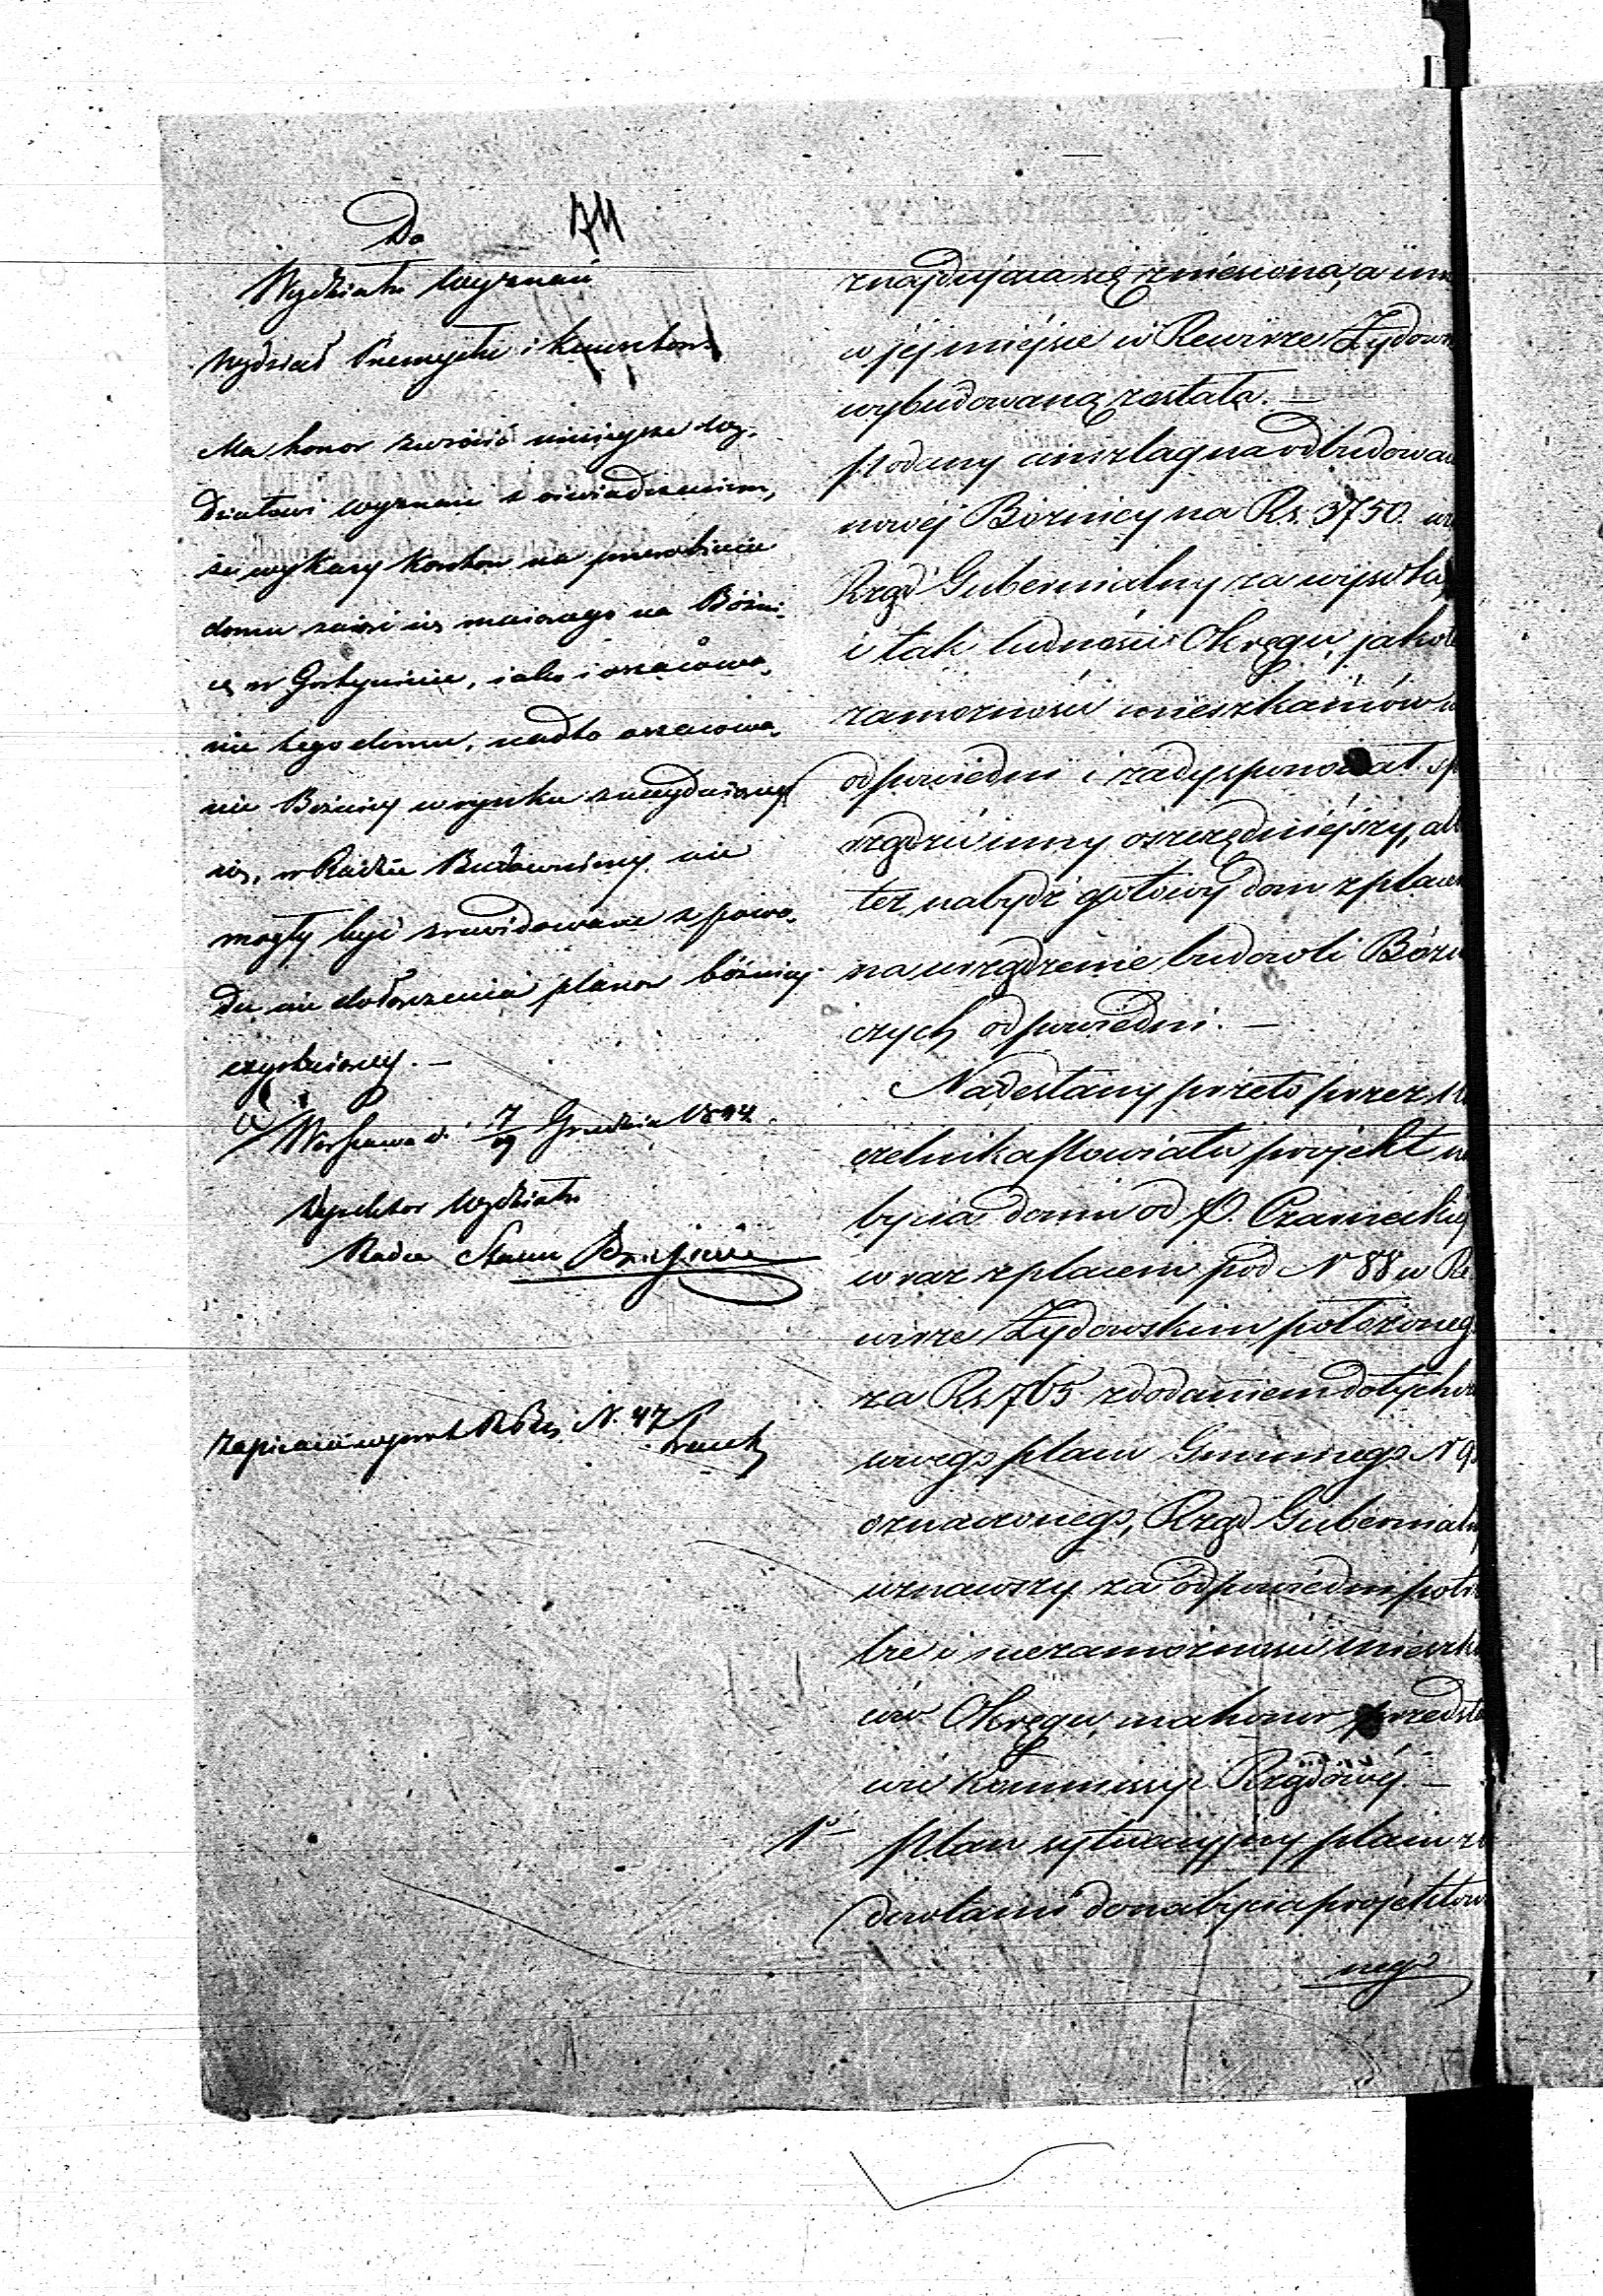 Do
741
Wydziału Wyznań
Wydział Przemysłu i Kunsztów
Ma honor zwrócić niniejsze Wy-
działowi Wyznań z oświadczeniem,
że wykazy kosztow na przerobienie
domu na Bóżni-
cę w Gostyninie, iako i oszacowa-
nie tego domu, nadto oszacowa-
nie Bożnicy w rynku znayduiącey
się, w Radzie Budowniczey nie
mogły być zrewidowane z powo-
du nie dołączenia planow bóżnicy
.—
w Warszawie d. 7/19 Grudnia 1844
Dyrektor Wydziału
Radca Stanu
N. 47
znajdująca się zniesioną, a inn
w jej miejsce w Rewirze Żydow
wybudowaną została.—
Podany anszlag na odbudowan
nowéj Bóżnicy na Rs. 3750. uz
Rząd Gubernialny za wysoki,
i tak ludności Okręgu, jakote
zamożności mieszkańców n
odpowiedni i zadysponował sp
rządzić inny oszczędniejszy, alb
też nabydź gotowy dom z placem
na urządzenie budowli Bóżn
czych odpowiedni.—
Nadesłany przeto przez Na
czelnika Powiatu projekt na
bycia domu od P. Czarneckiej
wraz z placem pod N 88 w Re
wirze Żydowskim położoneg
za Rs. 765 z dodaniem dotychcza
sowego placu Gminnego N 9
oznaczonego, Rząd Gubernialny
uznawszy za odpowiedni potrz
bie i niezamożności mieszka
ców Okręgu, ma honor przedsta
wić Kommissyi Rządowéj.—
1o Plan sytuacyjny placu z b
dowlami do nabycia projektow
nego